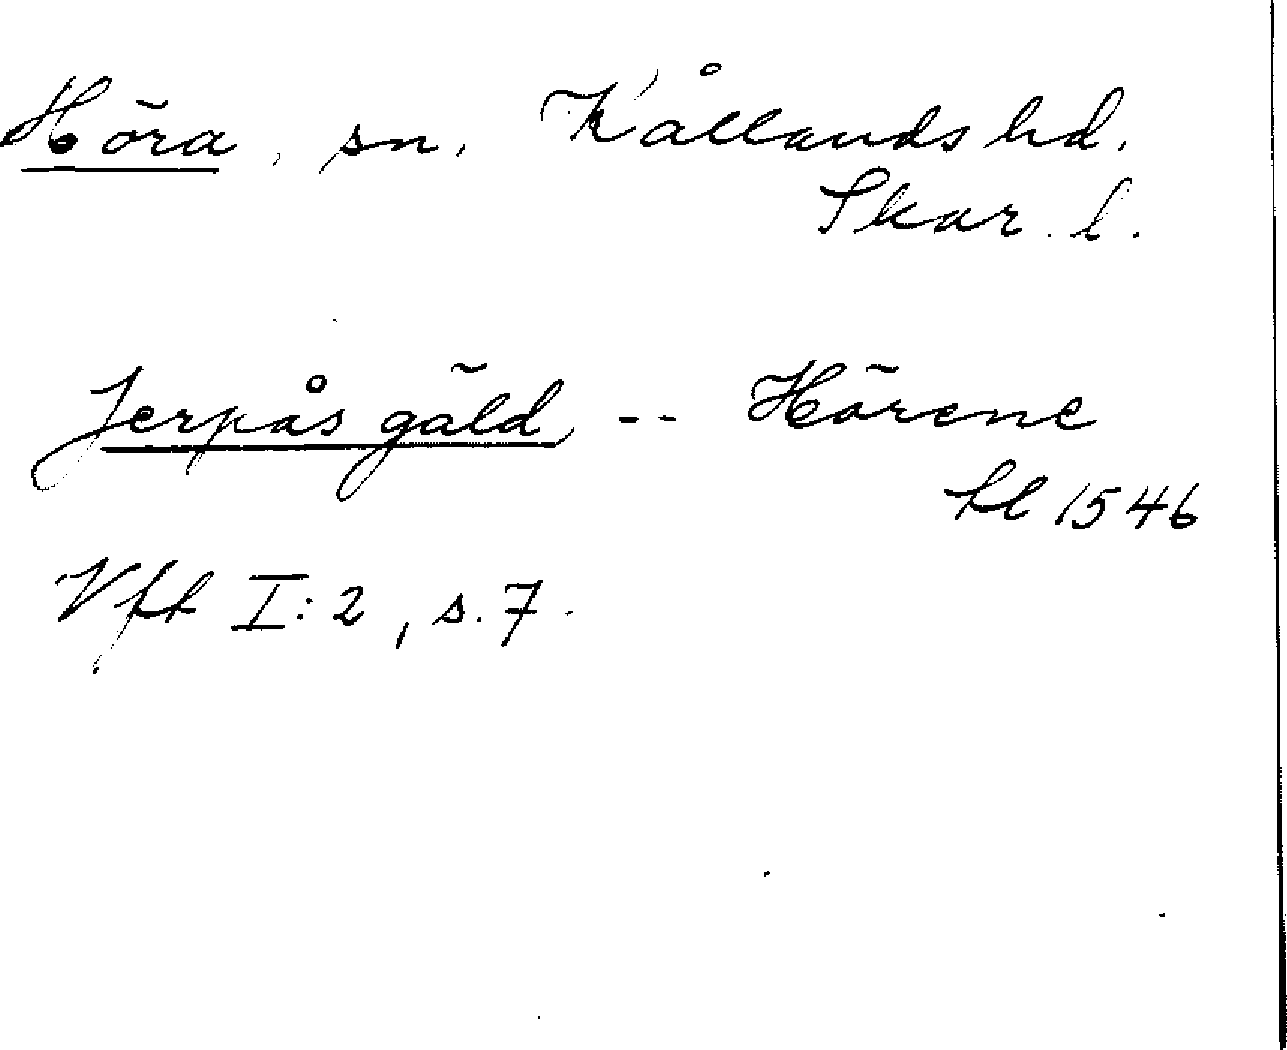 Höra, sn. Kållands hd.
Skar. l.
Jerpås gäld -- Hörene
hl 1546
Vft I:2, s. 7.